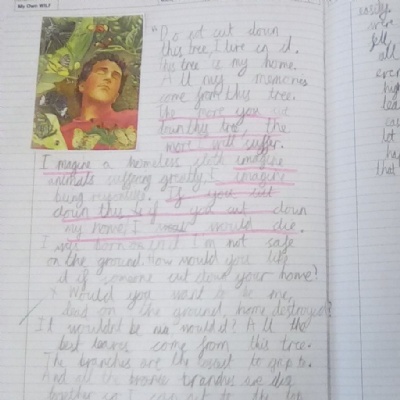 My Own WILF
"Do not cut down
this tree, I live in it.
This tree is my home.
All my memories
come from this tree.
The more you cut
down this tree, the
more I will suffer.
I magine a homeless sloth imagine
animals suffering greatly. I imagine
being If you cut
down this is if you cut down
my home, I would die.
I was born on it I'm not safe
on the ground. How would you like
it if someone cut down your home?
Would you want to be me,
dead on the ground, home destroyed?
It wouldn't be would it? All the
best leaves come from this tree.
The branches are the easist to grip to.
And all the branches are
together so I can get to the top
easily.
were
fell
all
ever
high
lea
cas
lot
ha
that